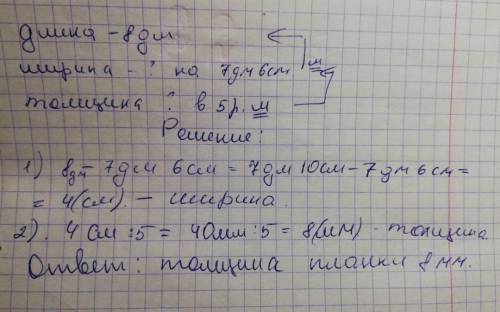 длина - 8 дм
ширина - ? на 7 дм 6 см м
толщина ? в 5 р. м
Решение:
1) 8 дм - 7 дм 6 см = 7 дм 10 см - 7 дм 6 см =
= 4 (см) - ширина.
2). 4 см : 5 = 40 мм : 5 = 8 (мм) - толщина.
Ответ: толщина планки 8 мм.